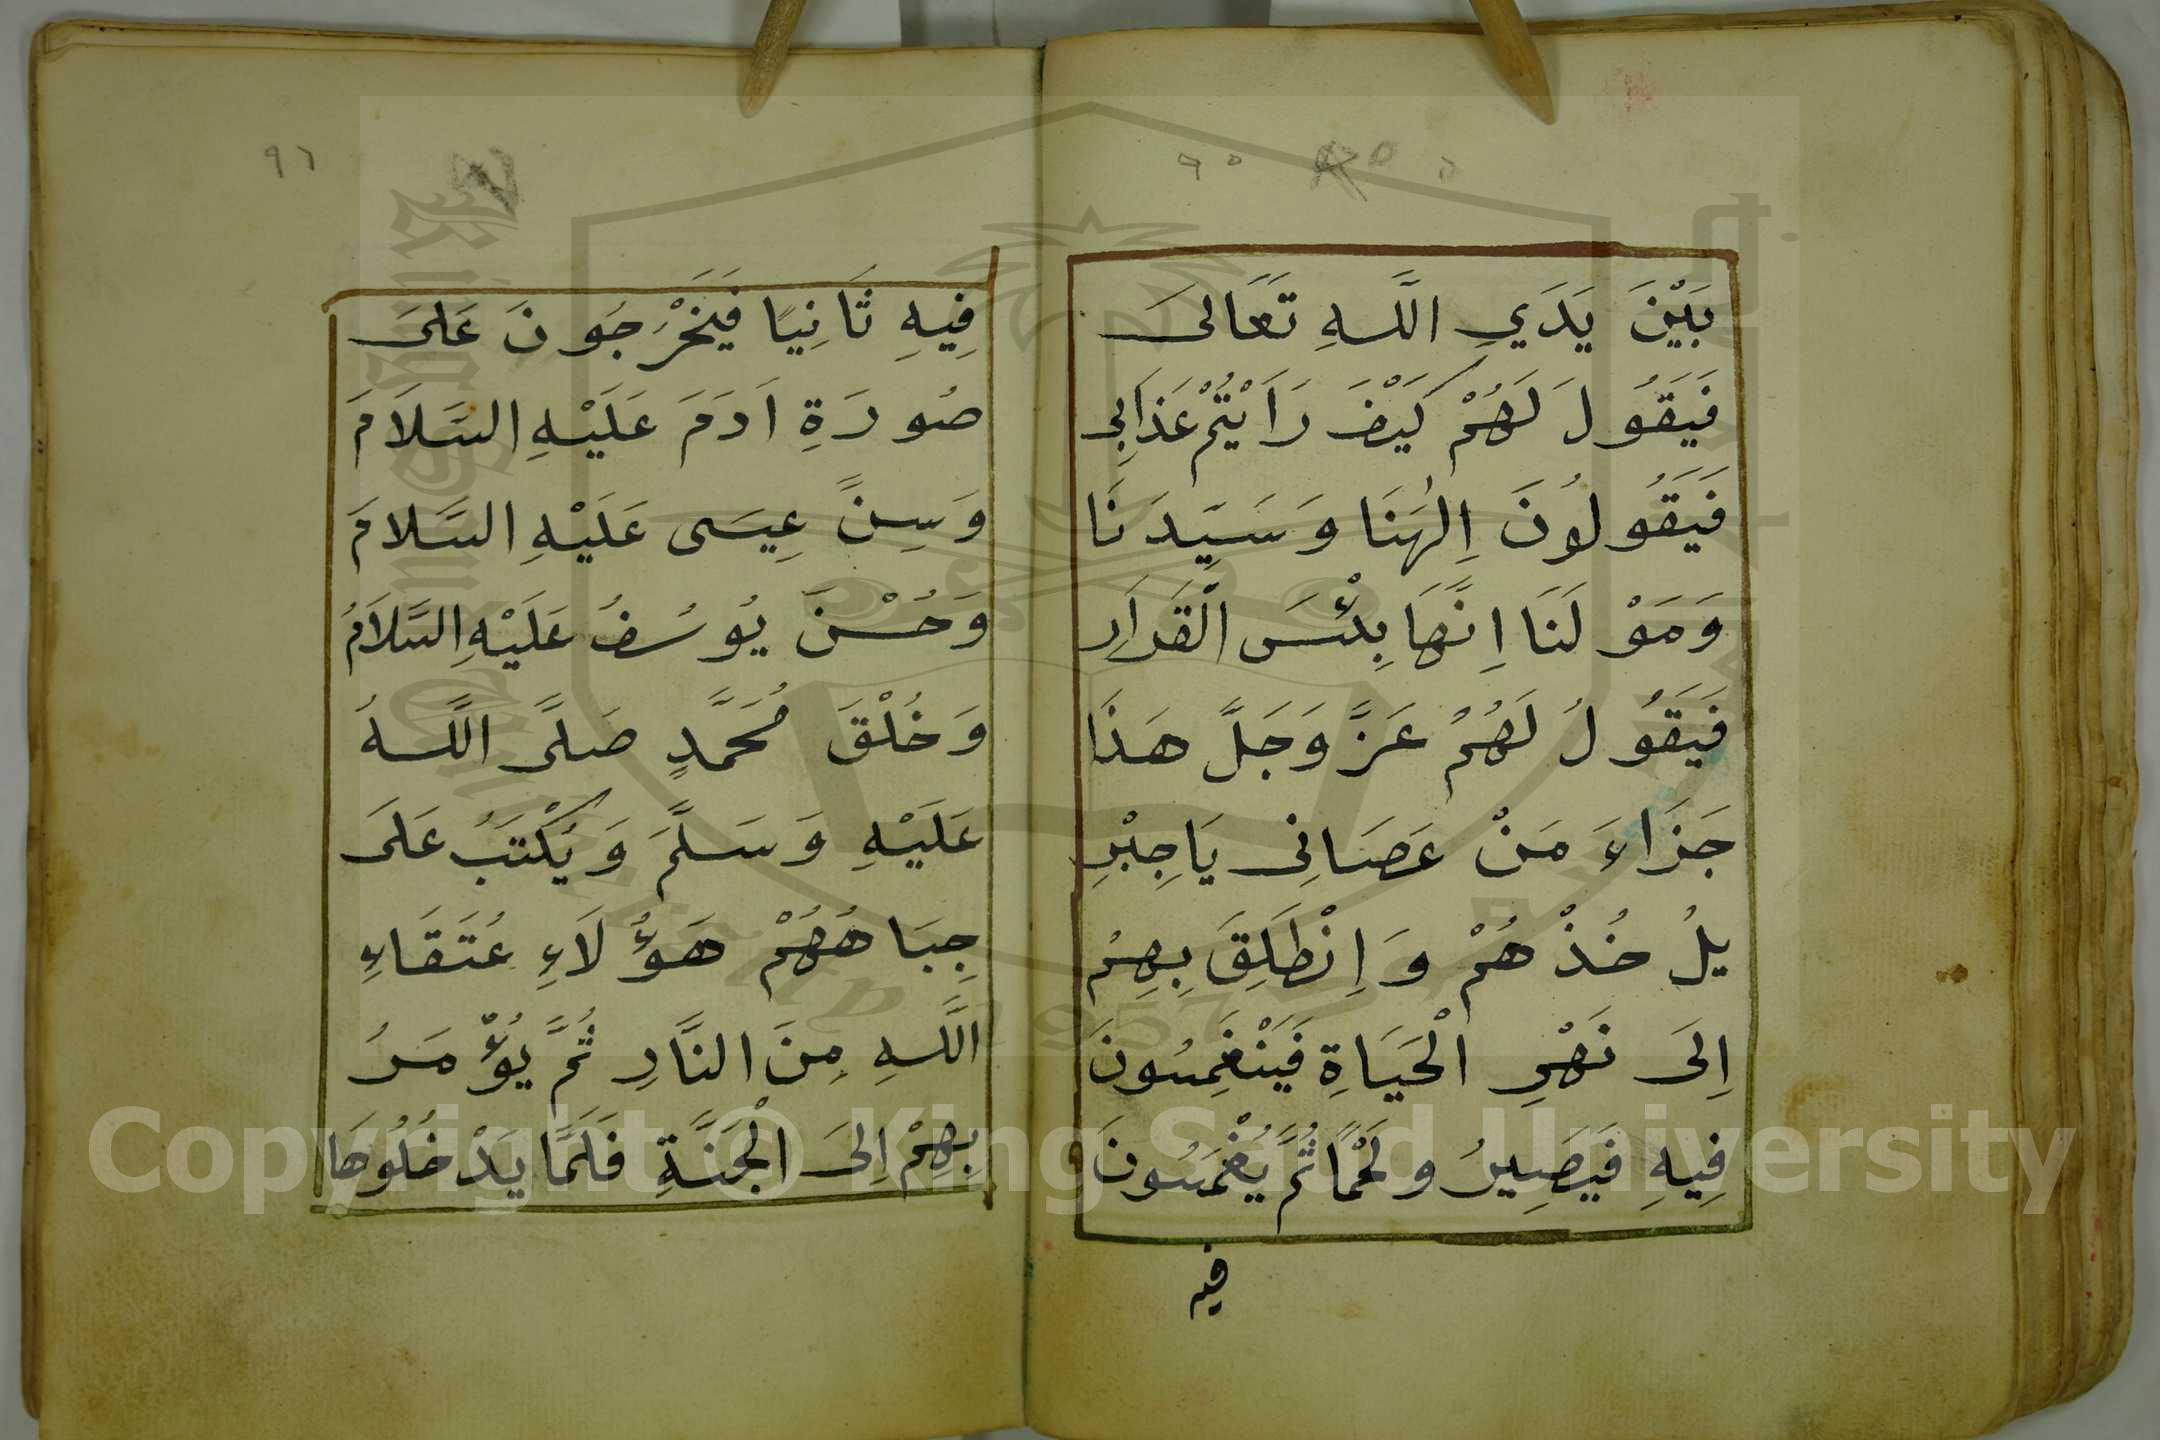 ٩٥
بَيْنَ يَدَيِ اللَّهِ تَعَالَى
فَيَقُولَ لَهُمْ كَيْفَ رَاَيْتُمْ عَذَابِى
فَيَقُولُونَ اِلٰهَنَا وَسَيِّدَنَا
وَمَوْلَنَا اِنَّهَا بِئْسَ الْقَرَارِ
فَيَقُولُ لَهُمُ عَزَّ وَجَلَّ هَذَا
جَزَاءَ مَنْ عَصَانِى يَا جِبْرِ
يلُ خُذْهُمْ وَاِنْطَلِقَ بِهِمُ
اِلَى نَهْرِ الْحَيَاةِ فَيَنْغَمِسُونَ
فِيهِ فَيَصِيرُ ولَحْمًا ثُمَّ يُغْمَسُونَ
فيه
٩٦
فِيهِ ثَانِيًا فَيَخْرُجُونَ عَلَى
صُورَةِ اَدَمَ عَلَيْهِ السَّلَامَ
وَسِنً عِيسَى عَلَيْهِ السَّلَامَ
وَحُسْنَ يُوسُفُ عَلَيْهِ السَّلَامُ
وَخُلْقَ مُحَمَّدٍ صَلَّى اللَّهُ
عَلَيْهِ وَسَلَّمَ وَيَكْتَبُ عَلَى
جِبَاهُهُمْ هَؤُلَاءِ عُتَقَاءِ
اللَّهِ مِنَ النَّارِ ثُمَّ يُؤْمَرُ
بِهِمْ اِلَى الْجَنَّةِ فَلَمَّا يَدْخُلُوهَا
Copyright © King Saud University
1957